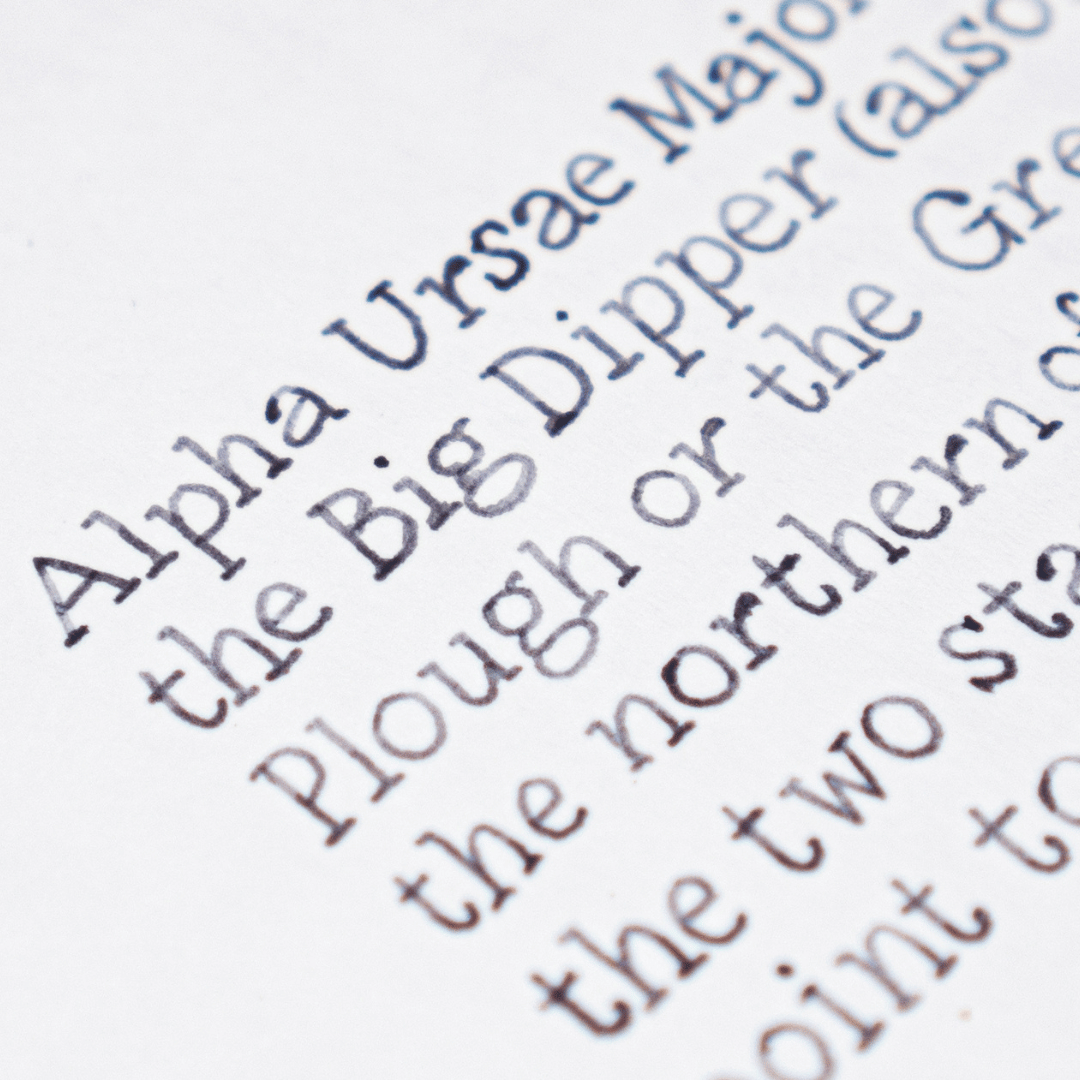 Alpha Ursae Major
the Big Dipper (also
Plough or the Gre
the northern of
the two sta
point to